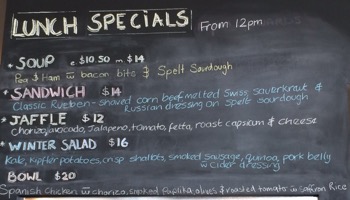 LUNCH SPECIALS From 12pm
* SOUP c $10.50 m $14
Pea & Ham w bacon bits & Spelt Sourdough
* SANDWICH $14
Classic Rueben - shaved corn beef, melted Swiss, sauerkraut &
Russian dressing on spelt sourdough
* JAFFLE $12
chorizo, avocado, Jalapeno, tomato, fetta, roast capsicum & cheese
* WINTER SALAD $16
Kale, kipfler potatoes, crisp shallots, smoked sausage, quinoa, pork belly
w Cider dressing
BOWL $20
Spanish Chicken w chorizo, smoked Paprika, olives & roasted tomato w Saffron Rice